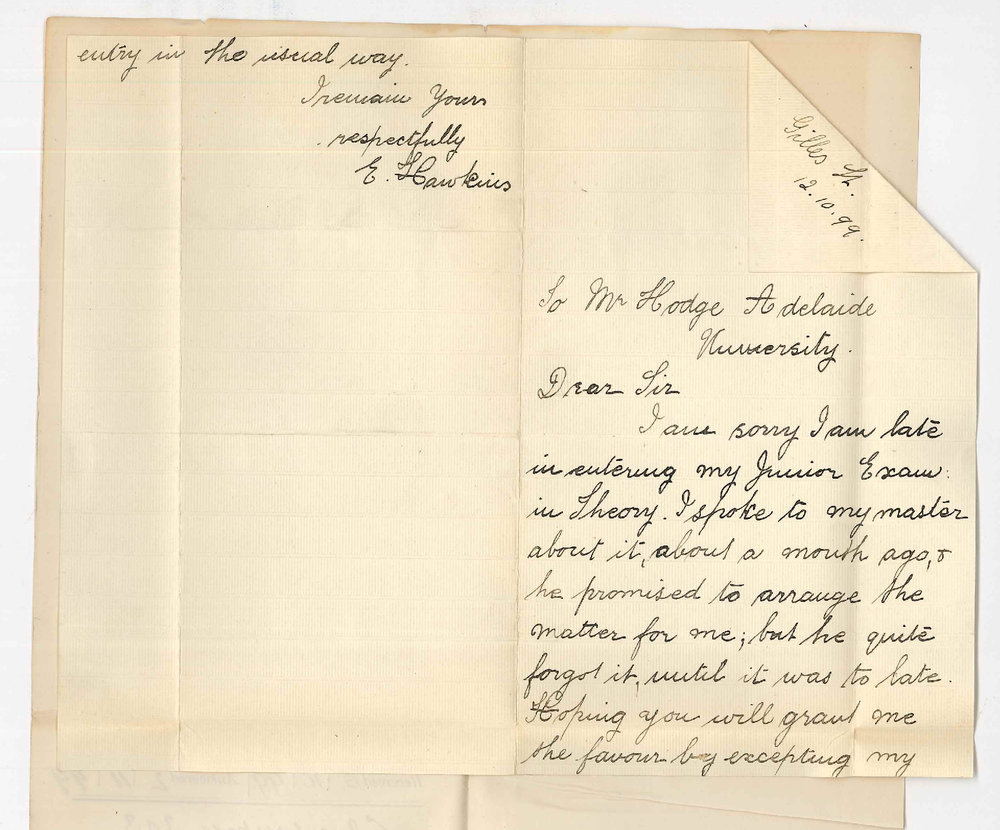 Gilles St.
12.10.99.
To Mr Hodge Adelaide
University.
Dear Sir
I am sorry I am late
in entering my Junior Exam:
in Theory. I spoke to my master
about it, about a month ago, &
he promised to arrange the
matter for me; but he quite
forgot it, until it was to late.
Hoping you will grant me
the favour by excepting my
entry in the usual way.
I remain Yours
respectfully
E. Hawkins